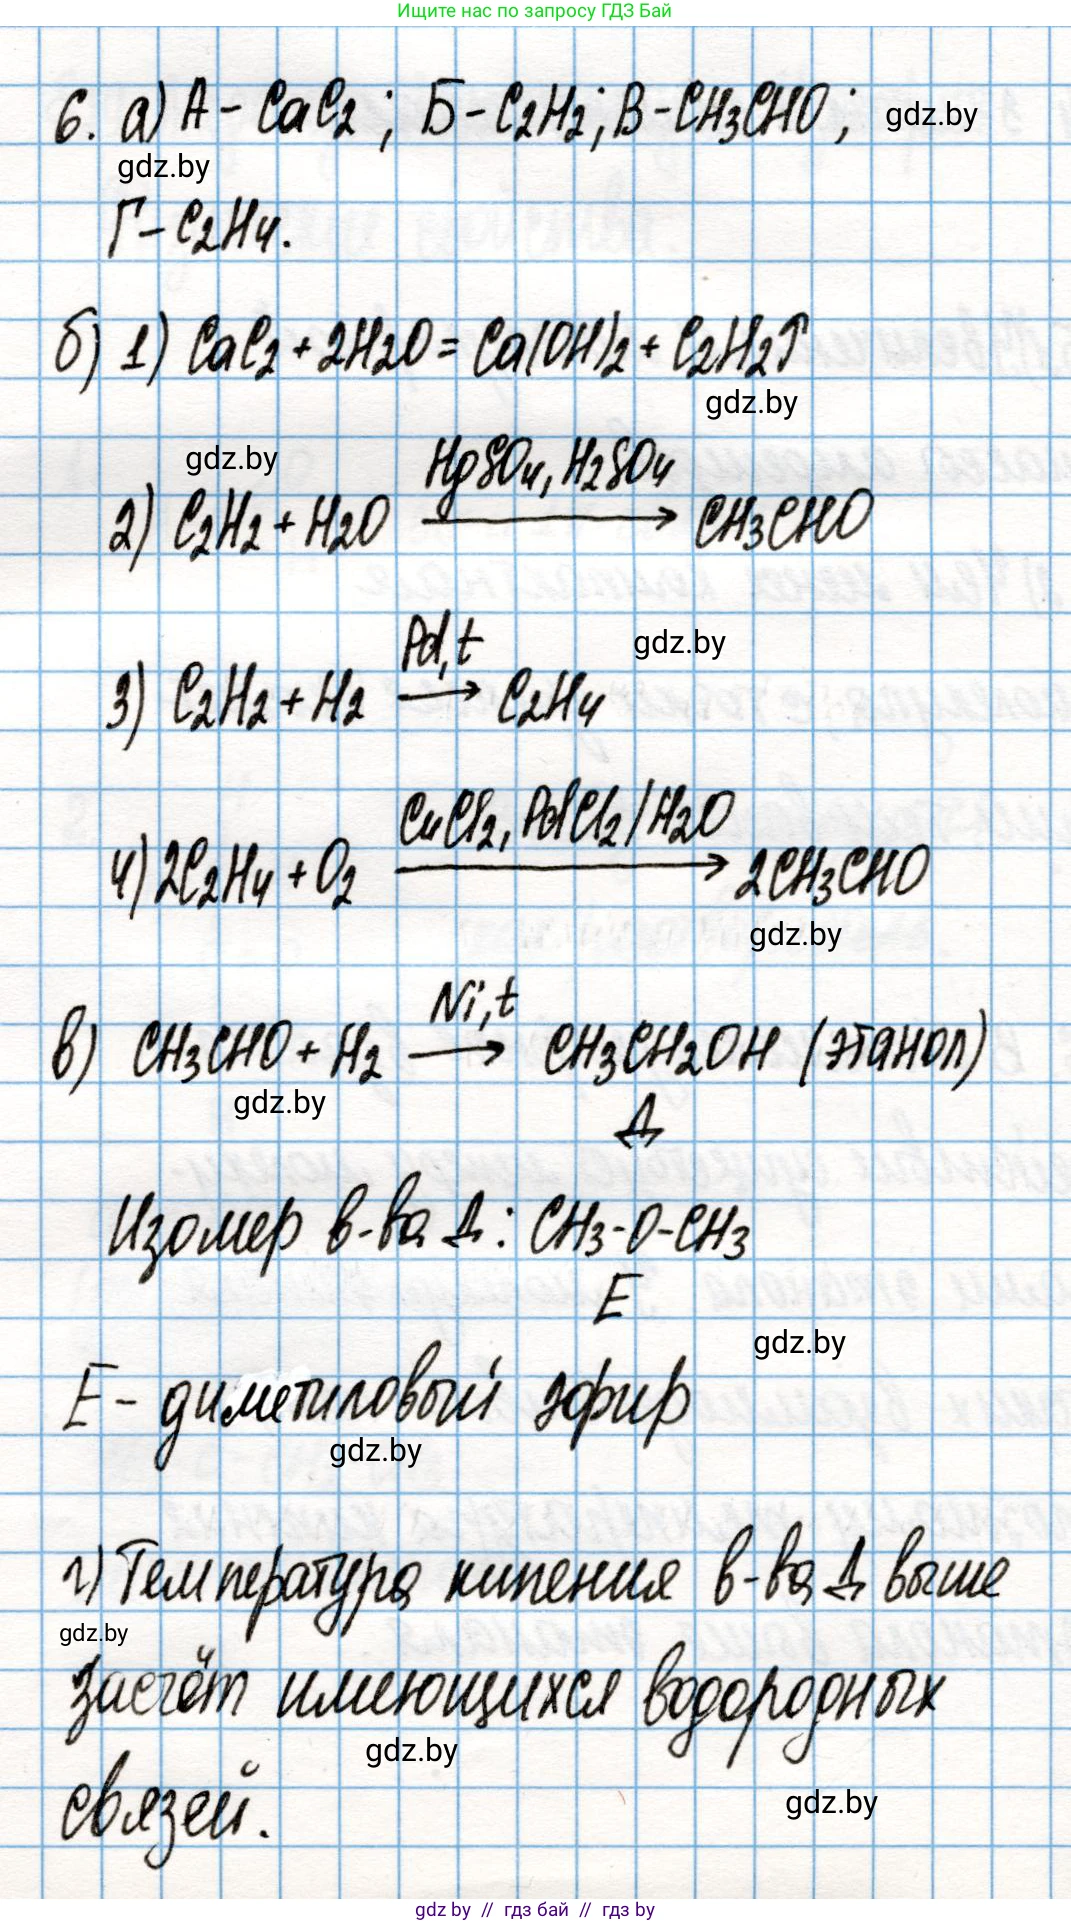 Ищите нас по запросу ГДЗ Бай
6. а) А - CaC2; Б - C2H2; В - CH3CHO; gdz.by
gdz.by
Г - C2H4.
б) 1) CaC2 + 2H2O = Ca(OH)2 + C2H2↑
gdz.by
gdz.by HgSO4, H2SO4
2) C2H2 + H2O → CH3CHO
Pd, t gdz.by
3) C2H2 + H2 → C2H4
CuCl2, PdCl2/H2O
4) 2C2H4 + O2 → 2CH3CHO
gdz.by
Ni, t
в) CH3CHO + H2 → CH3CH2OH (этанол)
gdz.by Д
Изомер в-ва Д: CH3-O-CH3
Е
gdz.by
Е - диметиловый эфир
gdz.by
г) Температура кипения в-ва Д выше
gdz.by
засчёт имеющихся водородных
gdz.by
связей.
gdz.by
gdz by // гдз бай // гдз by